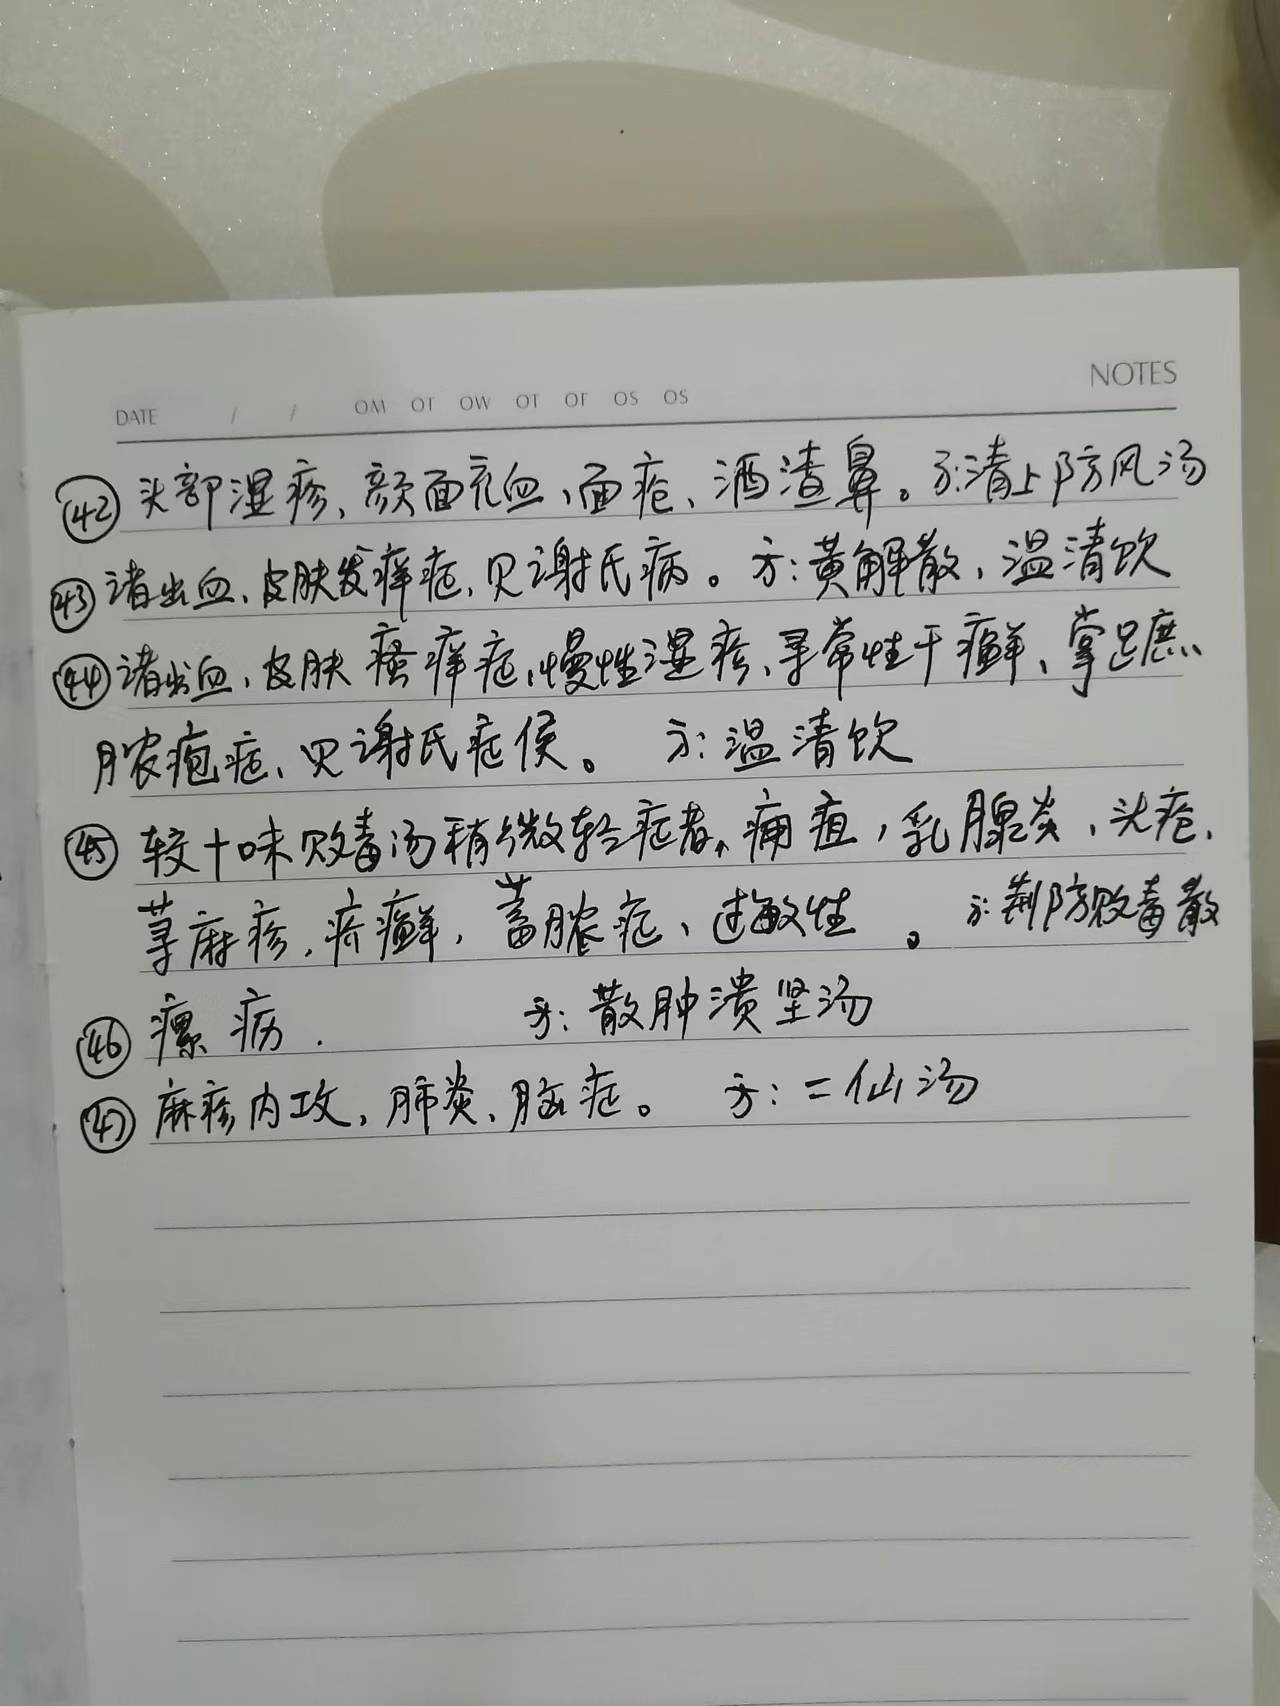 NOTES
DATE / / OM OT OW OT OF OS OS
㊷头部湿疹、颜面充血、面疮、酒渣鼻。方:清上防风汤
㊸诸出血、皮肤发痒症、贝谢氏病。方:黄解散、温清饮
㊹诸出血、皮肤瘙痒症、慢性湿疹、寻常性干癣、掌足庶
脓疱症、贝谢氏症侯。 方:温清饮
㊺较十味败毒汤稍微轻症者、痈疽,乳腺炎、头疮、
荨麻疹、疥癣,蓄脓症、过敏性 。方:荆防败毒散
㊻瘰疬. 方:散肿溃坚汤
㊼麻疹内攻、肺炎、脑症。 方:二仙汤